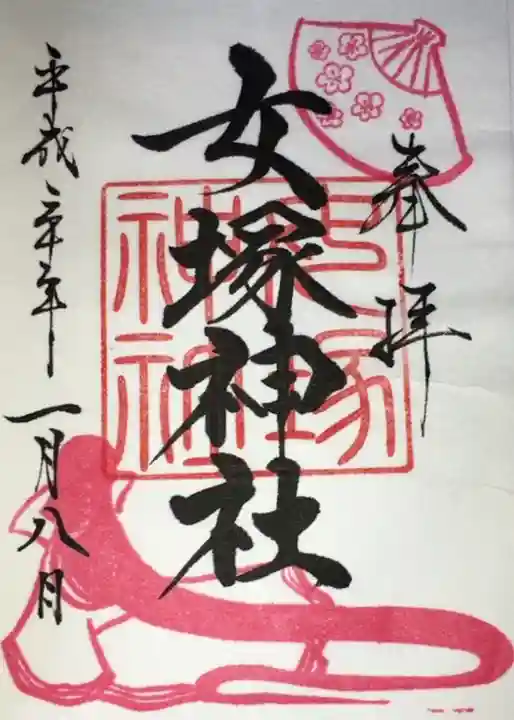 奉拝
女塚神社
平成三十年一月八日
女塚
神社